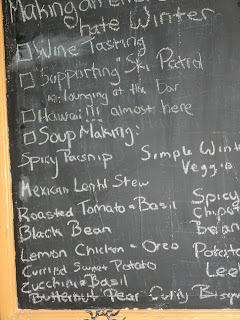 Making an en
hate Winter
□ Wine Tasting
□ Supporting "Ski Patrol
re: lounging at the bar
□ Hawaii!!! almost here
□ Soup Making:
Spicy Parsnip Simple Wint
Veggie
Mexican Lentil Stew
Roasted Tomato & Basil Spicy
Chipot
Black Bean Bean
Lemon Chicken & Orzo Potato
Curried Sweet Potato Lee
Zucchini & Basil
Butternut Pear Curry Bisque